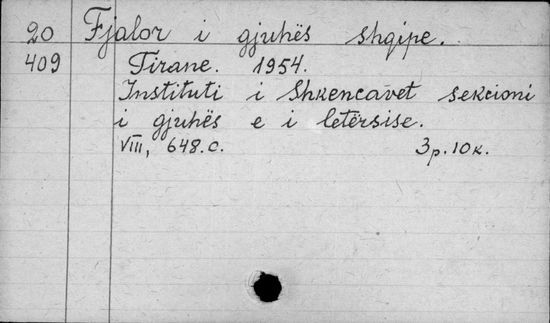 20 Fjalor i gjuhës shqipe.
409 Tirane. 1954.
Instituti i Shkencavet sekcioni
i gjuhës e i letërsise.
VIII, 648.c. 3p.10к.